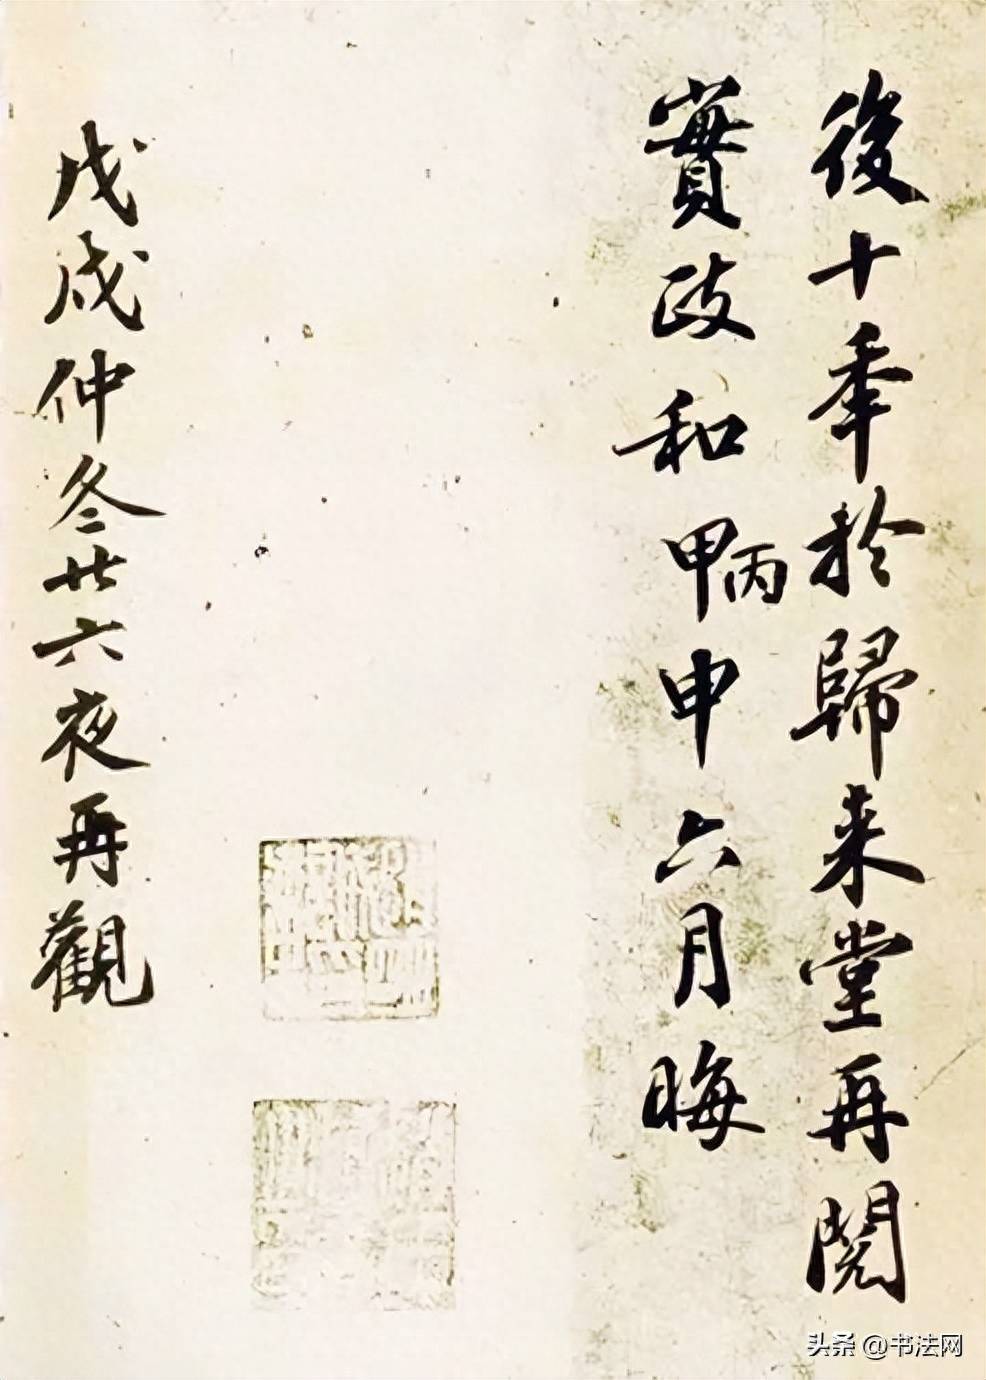 後十年於歸来堂再閲
實政和甲丙申六月晦
戊戌仲冬廿六夜再觀
头条 @书法网